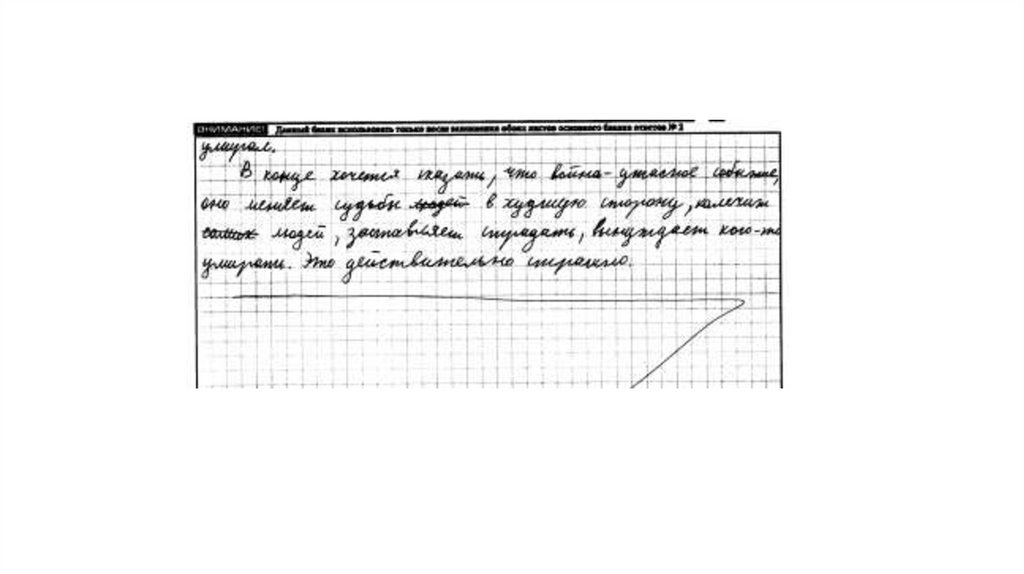 ВНИМАНИЕ! Данный бланк использовать только после заполнения обоих листов основного бланка ответов № 2
умирал.
В конце хочется сказать, что война - ужасное событие,
оно меняет судьбы людей в худшую сторону, калечит
самих людей, заставляет страдать, вынуждает кого-то
умирать. Это действительно страшно.